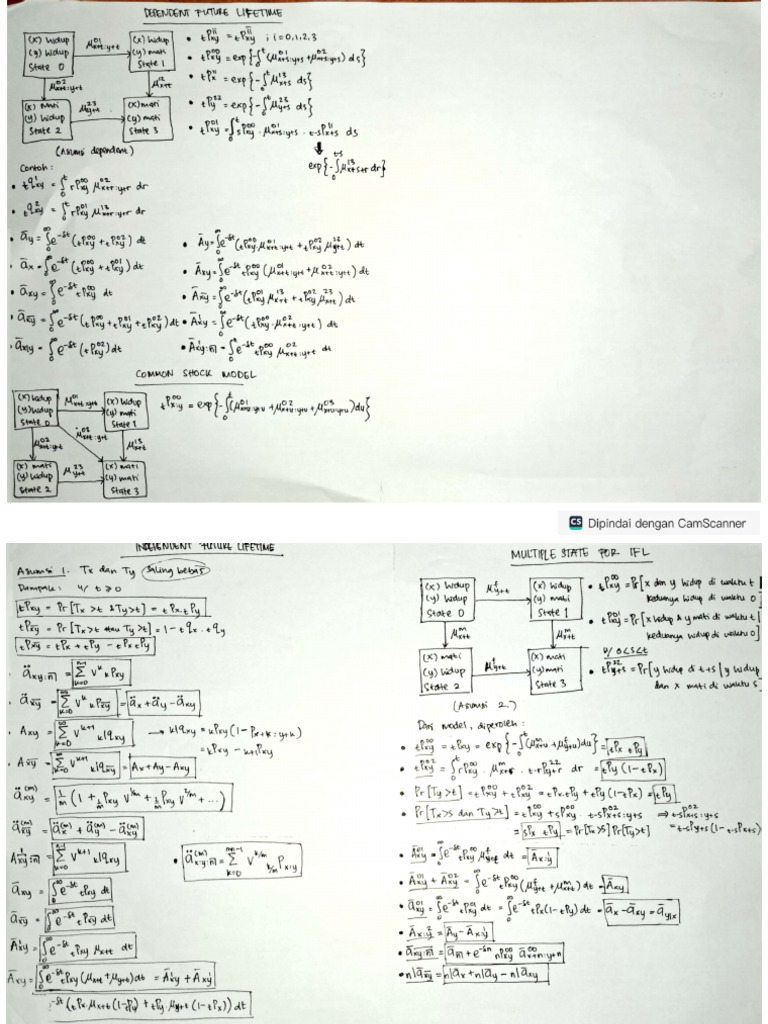 DEPENDENT FUTURE LIFETIME
(x) hidup
(y) hidup
State 0
μ^{01}_{x+t:y+t}
(x) hidup
(y) mati
State 1
μ^{02}_{x+t:y+t}
μ^{13}_{x+t}
(x) mati
(y) hidup
State 2
μ^{23}_{y+t}
(x) mati
(y) mati
State 3
(Asumsi dependent)
• tP^{ii}_{xy} = tP^{\overline{ii}}_{xy} ; i = 0,1,2,3
• tP^{00}_{xy} = exp{-∫_0^t (μ^{01}_{x+s:y+s} + μ^{02}_{x+s:y+s}) ds}
• tP^{11}_x = exp{-∫_0^t μ^{13}_{x+s} ds}
• tP^{22}_y = exp{-∫_0^t μ^{23}_{y+s} ds}
• tP^{01}_{xy} = ∫_0^t sP^{00}_{xy} . μ^{01}_{x+s:y+s} . t-sP^{11}_{x+s} ds
exp{-∫_0^{t-s} μ^{13}_{x+s+r} dr}
Contoh :
• tq^1_{xy} = ∫_0^t rP^{00}_{xy} μ^{02}_{x+r:y+r} dr
• tq^2_{xy} = ∫_0^t rP^{01}_{xy} μ^{13}_{x+r:y+r} dr
• ā_y = ∫_0^∞ e^{-δt} (tP^{00}_{xy} + tP^{02}_{xy}) dt
• ā_x = ∫_0^∞ e^{-δt} (tP^{00}_{xy} + tP^{01}_{xy}) dt
• ā_{xy} = ∫_0^∞ e^{-δt} tP^{00}_{xy} dt
• ā_{\overline{xy}} = ∫_0^∞ e^{-δt} (tP^{00}_{xy} + tP^{01}_{xy} + tP^{02}_{xy}) dt
• ā_{x|y} = ∫_0^∞ e^{-δt} (tP^{02}_{xy}) dt
• Ā_y = ∫_0^∞ e^{-δt} (tP^{00}_{xy} μ^{01}_{x+t:y+t} + tP^{02}_{xy} μ^{23}_{y+t}) dt
• Ā_{xy} = ∫_0^∞ e^{-δt} tP^{00}_{xy} (μ^{01}_{x+t:y+t} + μ^{02}_{x+t:y+t}) dt
• Ā_{\overline{xy}} = ∫_0^∞ e^{-δt} (tP^{01}_{xy} μ^{13}_{x+t} + tP^{02}_{xy} μ^{23}_{y+t}) dt
• Ā^1_{xy} = ∫_0^∞ e^{-δt} (tP^{00}_{xy} . μ^{02}_{x+t:y+t}) dt
• Ā^1_{xy:n̅|} = ∫_0^n e^{-δt} tP^{00}_{xy} μ^{02}_{x+t:y+t} dt
COMMON SHOCK MODEL
(x) hidup
(y) hidup
State 0
μ^{01}_{x+t:y+t}
(x) hidup
(y) mati
State 1
μ^{03}_{x+t:y+t}
μ^{02}_{x+t:y+t}
μ^{13}_{x+t}
(x) mati
(y) hidup
State 2
μ^{23}_{y+t}
(x) mati
(y) mati
State 3
tP^{00}_{x:y} = exp{-∫_0^t (μ^{01}_{x+u:y+u} + μ^{02}_{x+u:y+u} + μ^{03}_{x+u:y+u}) du}
CS Dipindai dengan CamScanner
INDEPENDENT FUTURE LIFETIME
Asumsi 1. Tx dan Ty saling bebas
Dampak : u/ t ≥ 0
tPxy = Pr[Tx > t & Ty > t] = tPx . tPy
tP\overline{xy} = Pr[Tx > t atau Ty > t] = 1 - tqx . tqy
tP\overline{xy} = tPx + tPy - tPx tPy
ä_{xy:n̅|} = Σ_{k=0}^{n-1} V^k kPxy
ä_{\overline{xy}} = Σ_{k=0}^∞ V^k kP\overline{xy} = äx + äy - äxy
Axy = Σ_{k=0}^∞ V^{k+1} k|qxy → k|qxy = kPxy (1 - Px+k:y+k)
= kPxy - k+1Pxy
A\overline{xy} = Σ_{k=0}^∞ V^{k+1} k|q\overline{xy} = Ax + Ay - Axy
ä^{(m)}_{xy} = 1/m (1 + 1/m Pxy V^{1/m} + 2/m Pxy V^{2/m} + ...)
ä^{(m)}_{\overline{xy}} = ä^{(m)}_x + ä^{(m)}_y - ä^{(m)}_{xy}
A^1_{xy:n̅|} = Σ_{k=0}^{n-1} V^{k+1} k|qxy
• ä^{(m)}_{x:y:n̅|} = Σ_{k=0}^{mn-1} V^{k/m} k/m Px:y
ā_{xy} = ∫_0^∞ e^{-δt} tPxy dt
ā_{\overline{xy}} = ∫_0^∞ e^{-δt} tP\overline{xy} dt
Ā^1_{xy} = ∫_0^∞ e^{-δt} tPxy μx+t dt
Ā_{xy} = ∫_0^∞ e^{-δt} tPxy (μx+t + μy+t) dt = Ā^1_{xy} + Ā_{xy}^1
e^{-δt} (tPx . μx+t (1 - tPy) + tPy μy+t (1 - tPx)) dt
MULTIPLE STATE FOR IFL
(x) hidup
(y) hidup
State 0
μ^f_{y+t}
(x) hidup
(y) mati
State 1
μ^m_{x+t}
μ^m_{x+t}
(x) mati
(y) hidup
State 2
μ^f_{y+t}
(x) mati
(y) mati
State 3
(Asumsi 2.)
• tP^{00}_{xy} = Pr[x dan y hidup di waktu t |
keduanya hidup di waktu 0]
• tP^{01}_{xy} = Pr[x hidup & y mati di waktu t |
keduanya hidup di waktu 0]
u/ 0<s<t
• tP^{22}_{y+s} = Pr[y hidup di t+s | y hidup
dan x mati di waktu s]
Dari model, diperoleh :
• tP^{00}_{xy} = tPxy = exp{-∫_0^t (μ^m_{x+u} + μ^f_{y+u}) du} = tPx tPy
• tP^{02}_{xy} = ∫_0^t rP^{00}_{xy} . μ^m_{x+r} . t-rP^{22}_{y+r} dr = tPy (1 - tPx)
• Pr[Ty > t] = tP^{00}_{xy} + tP^{02}_{xy} = tPx . tPy + tPy (1 - tPx) = tPy
• Pr[Tx > s dan Ty > t] = tP^{00}_{xy} + sP^{00}_{xy} . t-sP^{02}_{x+s:y+s} ⇒ t-sP^{02}_{x+s:y+s}
= sPx tPy = Pr[Tx > s] Pr[Ty > t] = t-sPy+s (1 - t-sPx+s)
• Ā^{01}_{xy} = ∫_0^∞ e^{-δt} tP^{00}_{xy} μ^f_{y+t} dt = Ā_{x:y}^1
• Ā^{01}_{xy} + Ā^{02}_{xy} = ∫_0^∞ e^{-δt} tP^{00}_{xy} (μ^f_{y+t} + μ^m_{x+t}) dt = Ā_{xy}
• ā^{01}_{xy} = ∫_0^∞ e^{-δt} tP^{01}_{xy} dt = ∫_0^∞ e^{-δt} tPx (1 - tPy) dt = ā_x - ā_{xy} = ā_{y|x}
• Ā_{x:y}^2 = Ā_y - Ā_{x:y}^1
• ā_{xy:n̅|} = ā_{n̅|} + e^{-δn} nP^{00}_{xy} ā^{00}_{x+n:y+n}
• n|ā_{\overline{xy}} = n|ā_x + n|ā_y - n|ā_{xy}